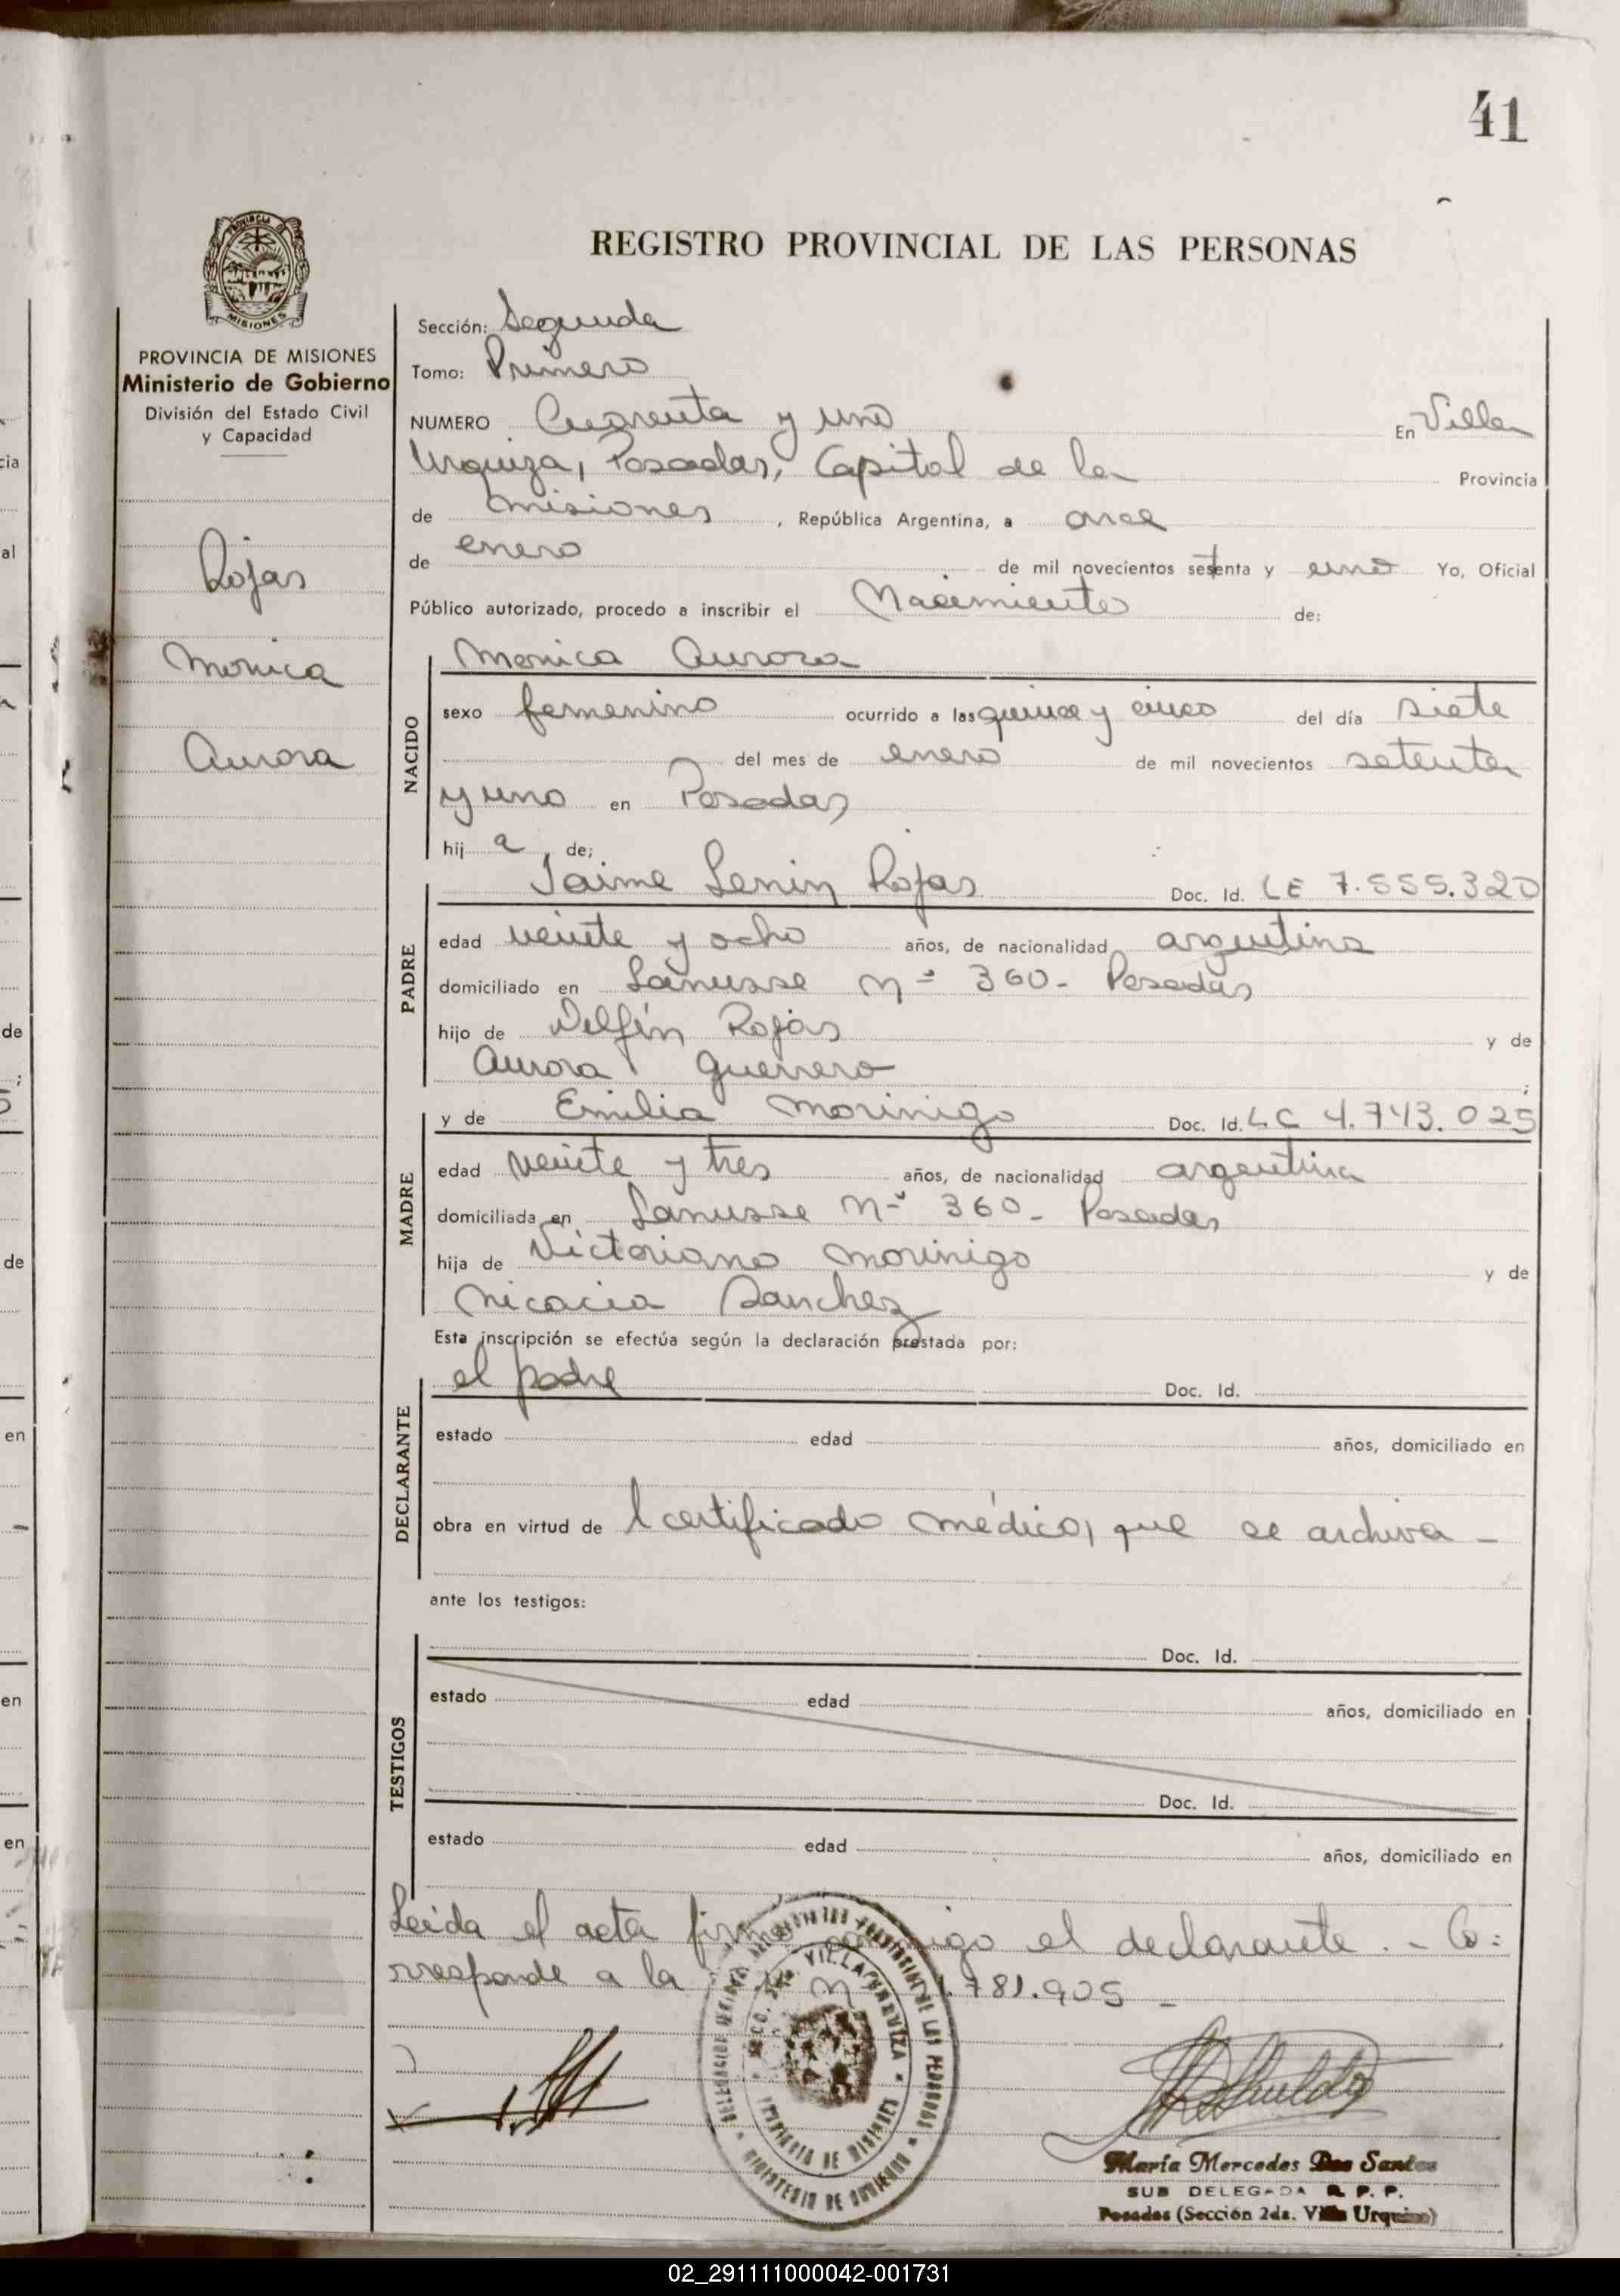 41
REGISTRO PROVINCIAL DE LAS PERSONAS
PROVINCIA DE MISIONES
MISIONES
PROVINCIA DE MISIONES
Ministerio de Gobierno
División del Estado Civil
y Capacidad
Rojas
Monica
Aurora
Sección: Segunda
Tomo: Primero
NUMERO Cuarenta y uno En Villa
Urquiza, Posadas, Capital de la Provincia
de Misiones, República Argentina, a once
de enero de mil novecientos setenta y uno Yo, Oficial
Público autorizado, procedo a inscribir el Nacimiento de:
NACIDO
Monica Aurora
sexo femenino ocurrido a las quince y cinco del día siete
del mes de enero de mil novecientos setenta
y uno en Posadas
hij a de;
PADRE
Jaime Lenin Rojas Doc. Id. LE 7.555.320
edad veinte y ocho años, de nacionalidad argentina
domiciliado en Lanusse Nº 360- Posadas
hijo de Delfín Rojas y de
Aurora Guerrero ;
MADRE
y de Emilia Morinigo Doc. Id. LC 4.743.025
edad veinte y tres años, de nacionalidad argentina
domiciliada en Lanusse Nº 360- Posadas
hija de Victoriano Morinigo y de
Nicacia Sanchez
Esta inscripción se efectúa según la declaración prestada por:
DECLARANTE
el padre Doc. Id.
estado edad años, domiciliado en
obra en virtud de l certificado médico, que se archiva -
ante los testigos:
TESTIGOS
Doc. Id.
estado edad años, domiciliado en
Doc. Id.
estado edad años, domiciliado en
Leída el acta firma conmigo el declarante. - Co:
rresponde a la Nº .781.905 -
VILLA URQUIZA
PROVINCIA DE MISIONES
MINISTERIO DE GOBIERNO
María Mercedes Dos Santos
SUB DELEGADA R. P. P.
Posadas (Sección 2da. Villa Urquiza)
02_291111000042-001731